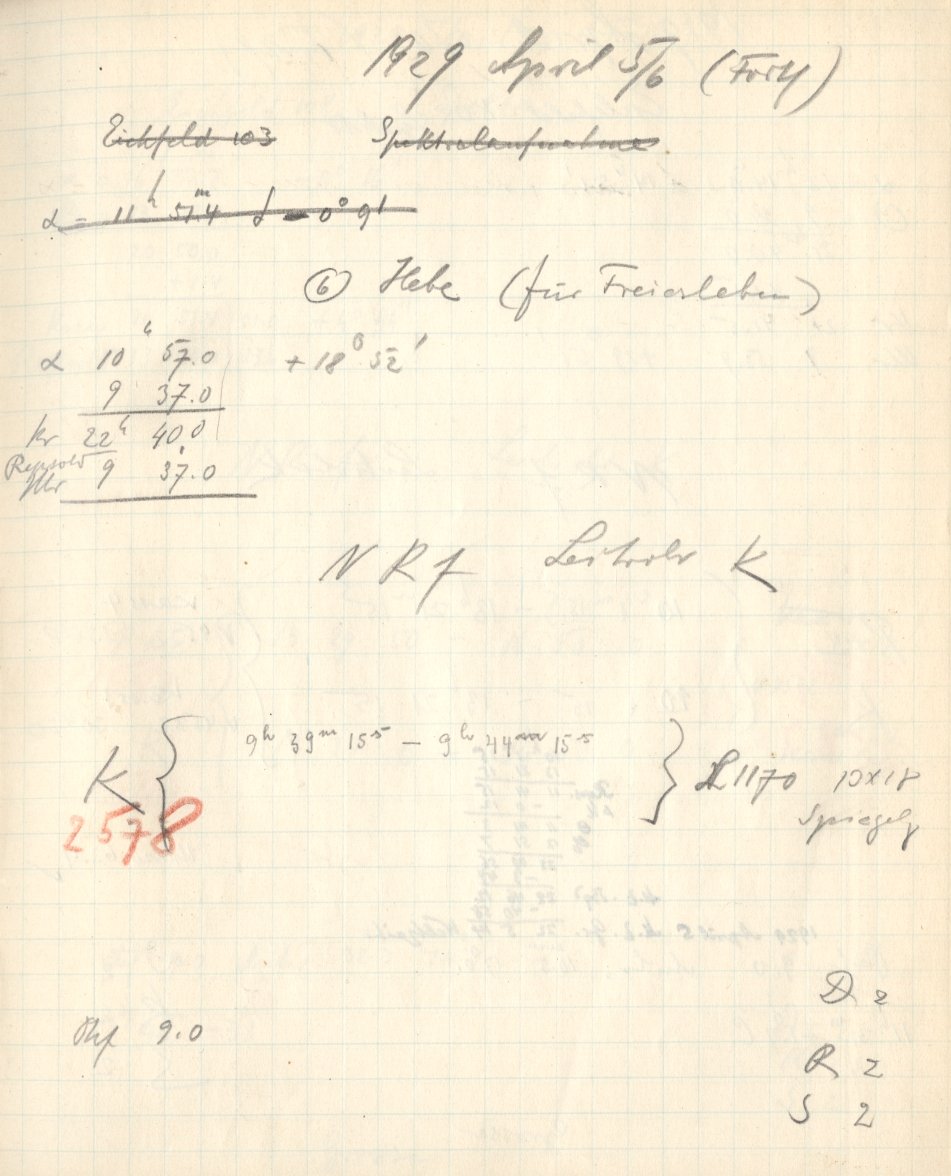 1929 April 5/6 (Forts)
Eichfeld 103 Spektralaufnahme
α = 11h 51m.4 δ - 0° 9'
(6) Hebe (für Freiesleben)
α 10h 57.0 + 18° 52'
9 37.0
Kr 22h 40 0
Repsold Uhr 9 37.0
N R f Leitrohr K
K { 9h 39m 15s — 9h 44m 15s } L 1170 13x18
2578 Spiegelg
D 2
Okf 9.0
R 2
S 2